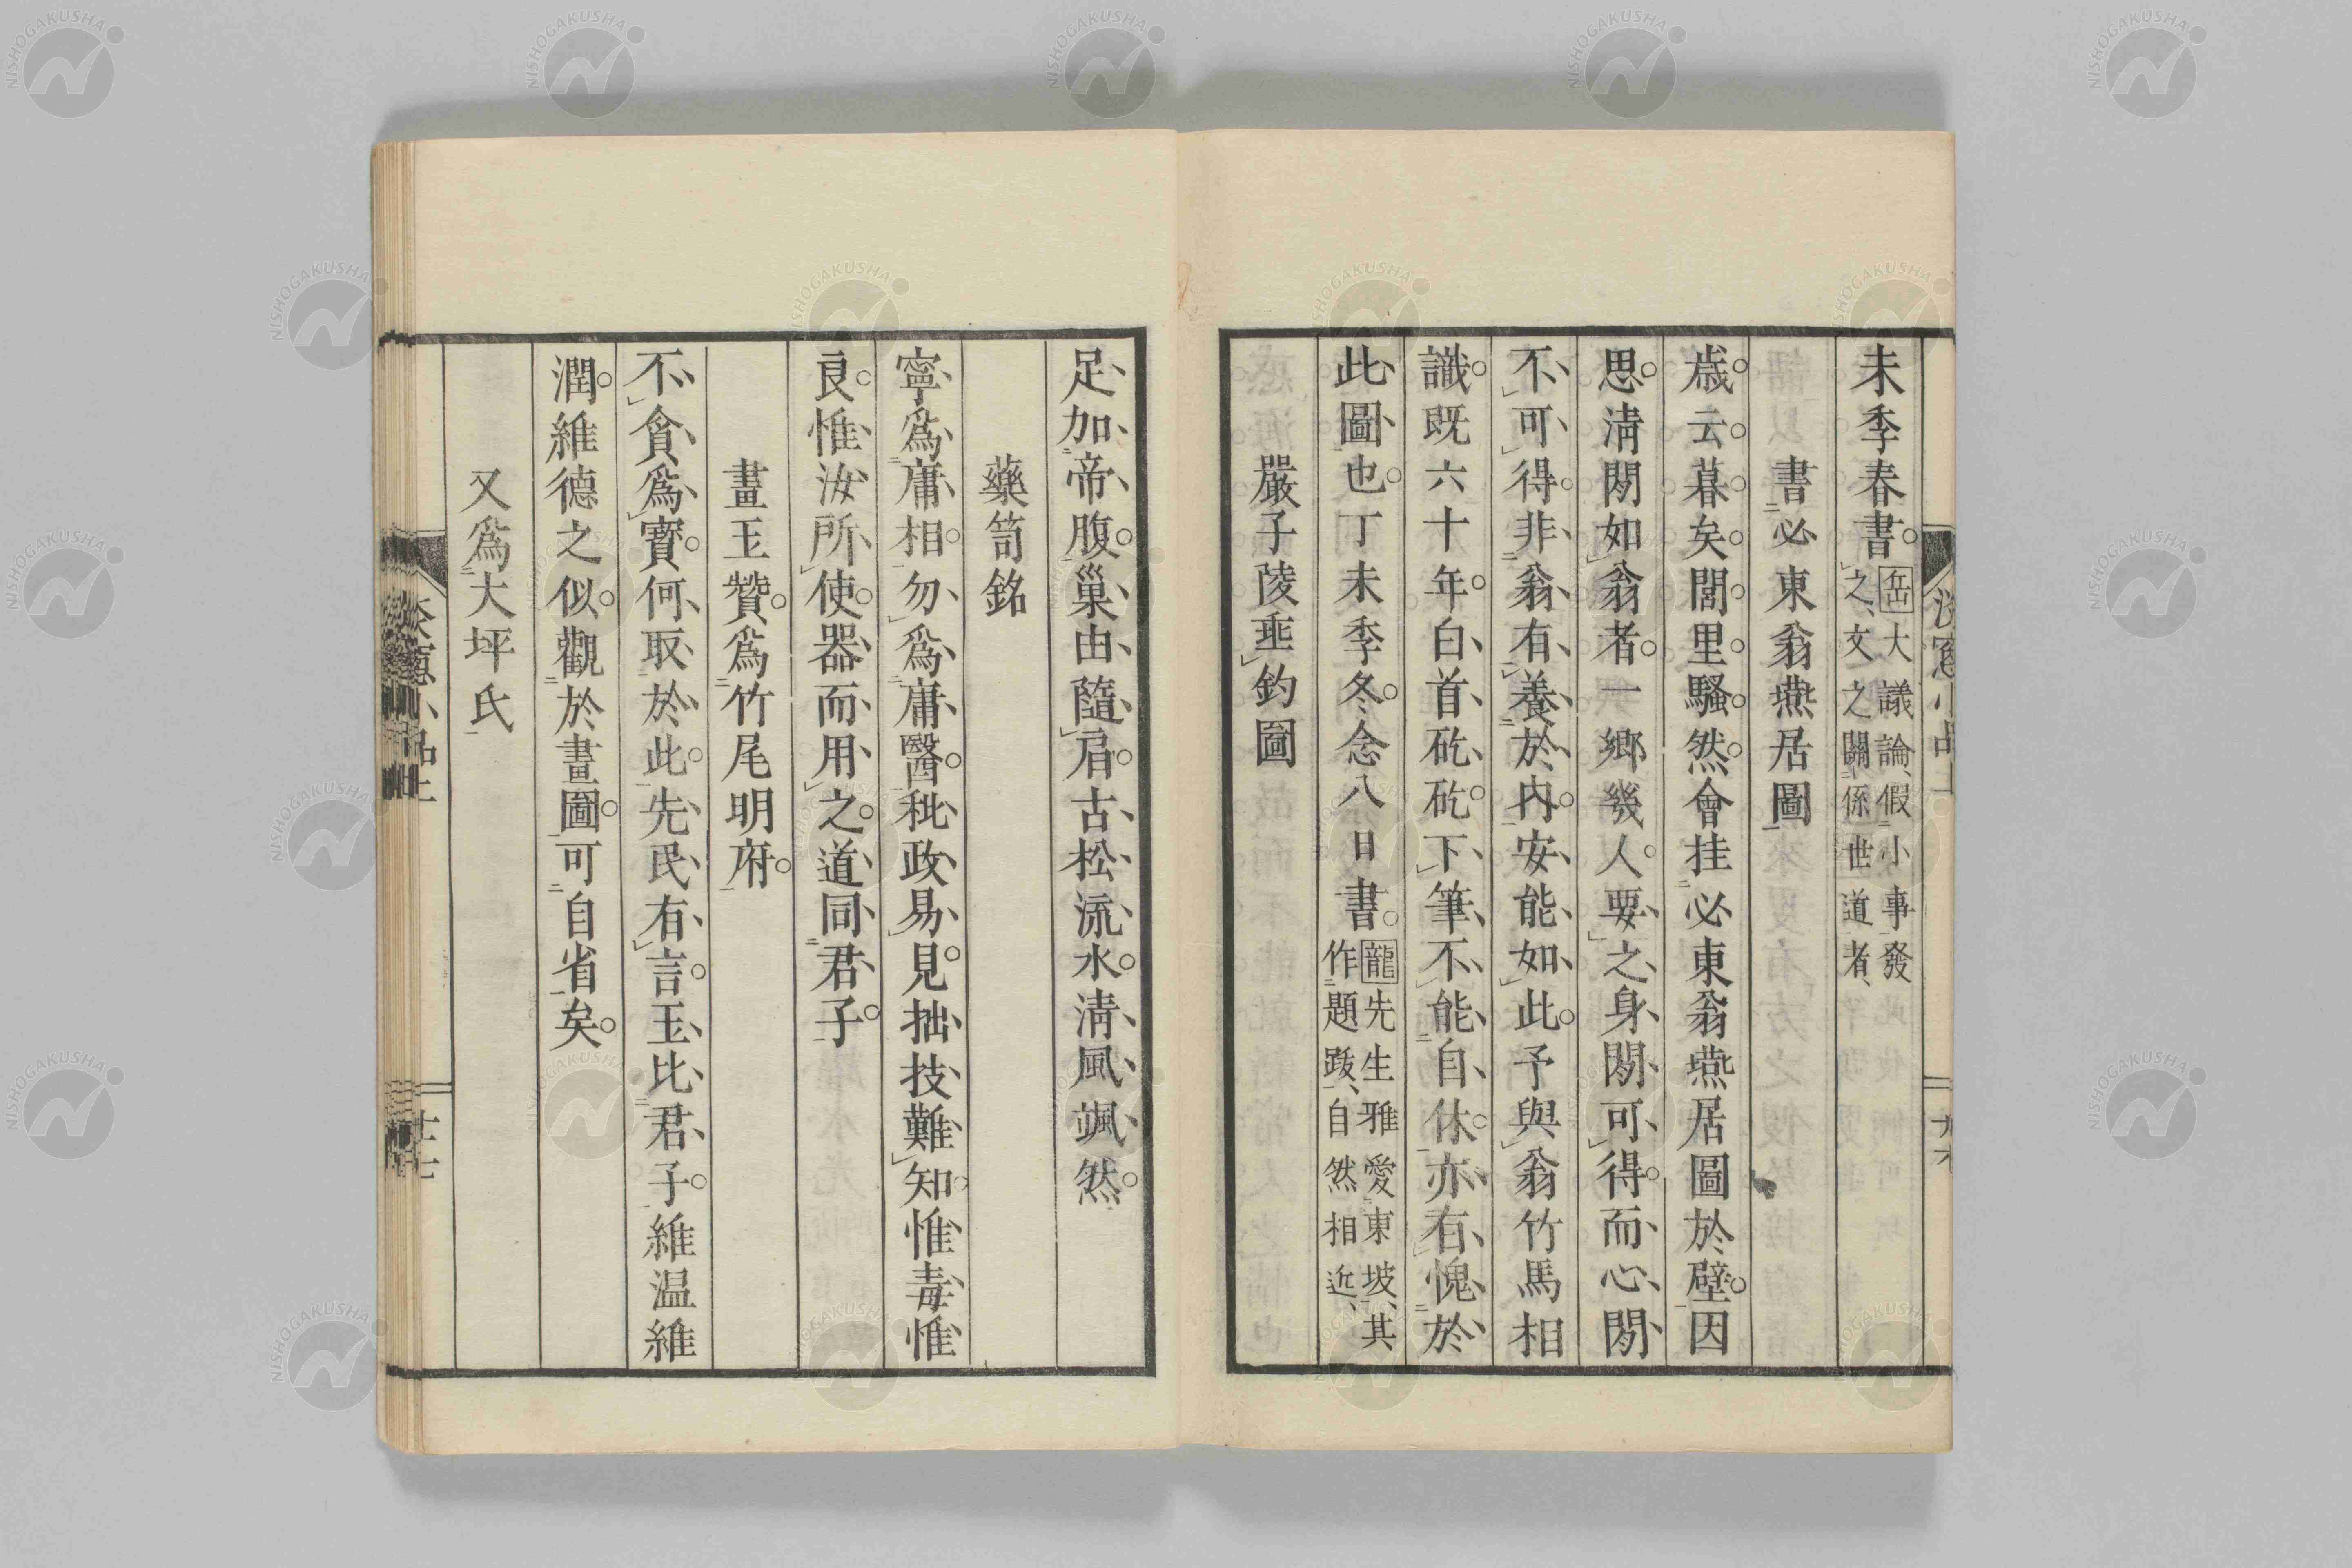 未季春書。岳大議論、假小事發
之、文之關係世道者、
書必東翁燕居圖
歳云暮矣。閭里騷然。會挂必東翁燕居圖於壁。因
思清閒如翁者。一鄉幾人。要之、身閒可得。而心閒
不可得。非翁有養於內。安能如此。予與翁竹馬相
識。既六十年。白首矻矻。下筆不能自休。亦有愧於
此圖也。丁未季冬。念八日書。龍先生雅愛東坡、其
作題跋、自然相近、
嚴子陵垂釣圖
足加帝腹。巢由隨肩。古松流水。清風颯然。
藥笥銘
寧爲庸相。勿爲庸醫。秕政易見。拙技難知。惟毒惟
良。惟汝所使。器而用之。道同君子。
畫玉贊。爲竹尾明府。
不貪爲寶。何取於此。先民有言。玉比君子。維温維
潤。維德之似。觀於畫圖。可自省矣。
又爲大坪氏
NISHOGAKUSHA